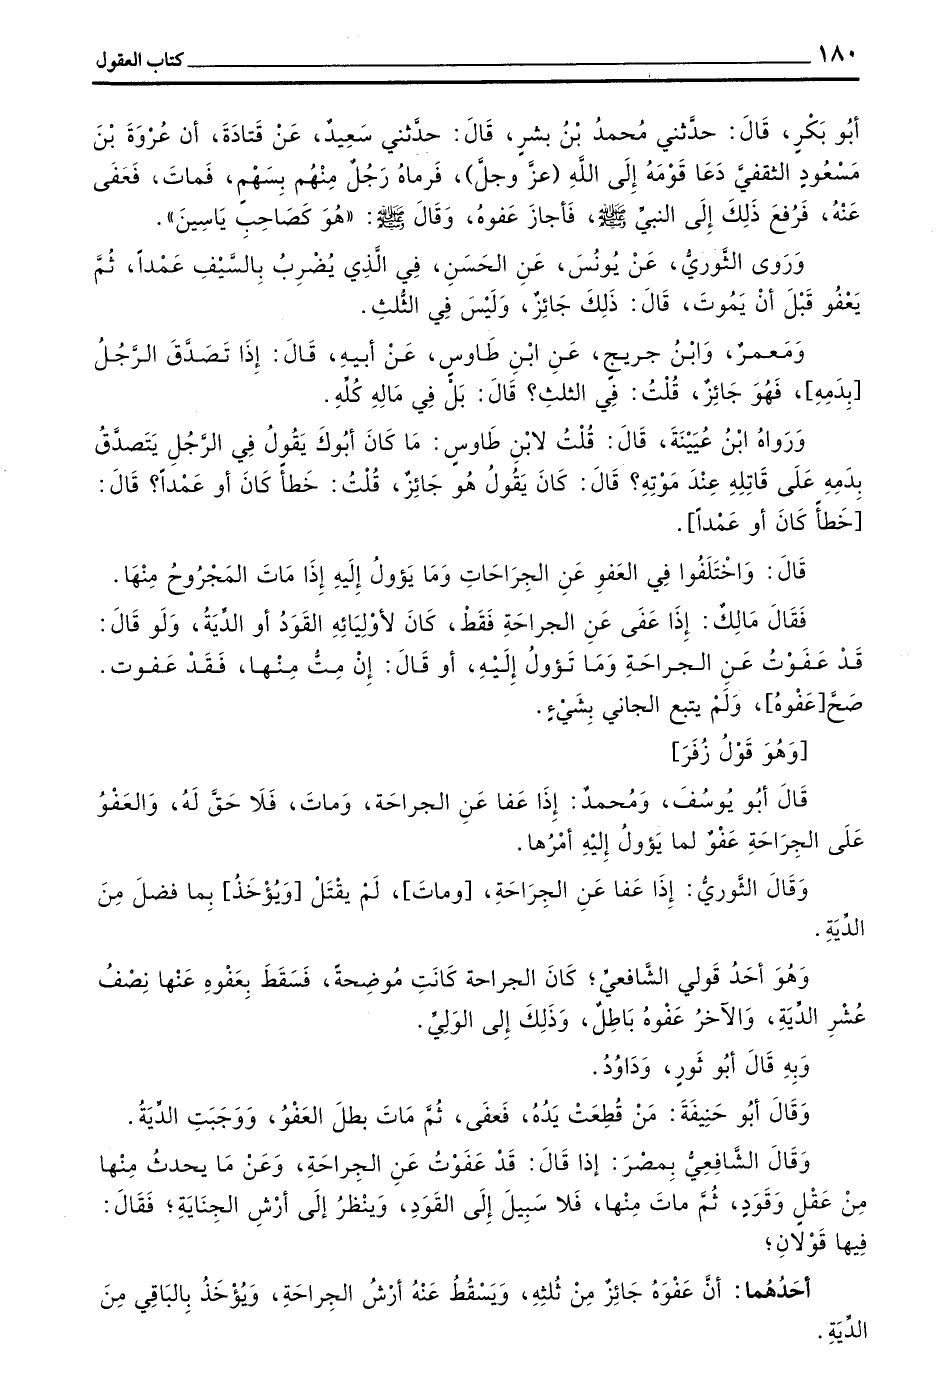 ١٨٠ كتاب العقول
أبُو بَكْرٍ، قَالَ: حدَّثني مُحمدُ بْنُ بشرٍ، قَالَ: حدَّثني سَعِيدٌ، عَنْ قَتادَةَ، أن عُرْوَةَ بْنَ
مَسْعُودٍ الثقفيَّ دَعَا قَوْمَهُ إلَى اللَّهِ (عزَّ وجلَّ)، فَرماهُ رَجُلٌ مِنْهُم بِسَهْمٍ، فَماتَ، فَعَفَى
عَنْهُ، فَرُفعَ ذَلِكَ إلَى النبيِّ ﷺ، فَأجازَ عَفوهُ، وَقَالَ ﷺ: «هُوَ كَصَاحِبِ يَاسِينَ».
وَرَوى الثَّوريُّ، عَنْ يُونسَ، عَنِ الحَسَنِ، فِي الَّذِي يُضْرِبُ بِالسَّيْفِ عَمْداً، ثُمَّ
يَعْفُو قَبْلَ أنْ يَمُوتَ، قَالَ: ذَلِكَ جَائِزٌ، وَلَيْسَ فِي الثُّلثِ.
وَمَعمرٌ، وَابْنُ جريجٍ، عَنِ ابْنِ طَاوسٍ، عَنْ أبيهِ، قَالَ: إذَا تَصَدَّقَ الرَّجُلُ
[بِدَمِهِ]، فَهُوَ جَائِزٌ، قُلْتُ: فِي الثلثِ؟ قَالَ: بَلْ فِي مَالِهِ كُلِّهِ.
وَرَواهُ ابْنُ عُيَيْنَةَ، قَالَ: قُلْتُ لابْنِ طَاوسٍ: مَا كَانَ أبُوكَ يَقُولُ فِي الرَّجُلِ يَتَصدَّقُ
بِدَمِهِ عَلَى قَاتِلِهِ عِنْدَ مَوْتِهِ؟ قَالَ: كَانَ يَقُولُ هُوَ جَائِزٌ، قُلْتُ: خَطأً كَانَ أو عَمْداً؟ قَالَ:
[خَطأً كَانَ أو عَمْداً].
قَالَ: وَاخْتَلَفُوا فِي العَفوِ عَنِ الجِرَاحَاتِ وَمَا يَؤولُ إلَيهِ إذَا مَاتَ المَجْرُوحُ مِنْهَا.
فَقَالَ مَالِكٌ: إذَا عَفَى عَنِ الجراحَةِ فَقَطْ، كَانَ لأوْلِيَائِهِ القَوَدُ أو الدِّيَةُ، وَلَو قَالَ:
قَدْ عَفَوْتُ عَنِ الجراحَةِ وَمَا تَؤولُ إلَيْهِ، أو قَالَ: إنْ مِتُّ مِنْها، فَقَدْ عَفوت.
صَحَّ [عَفْوهُ]، وَلَمْ يتبع الجاني بِشَيْءٍ.
[وَهُوَ قَوْلُ زُفَرَ]
قَالَ أبُو يُوسُفَ، وَمُحمدٌ: إذَا عَفا عَنِ الجراحَة، وَماتَ، فَلَا حَقَّ لَهُ، وَالعَفْوُ
عَلَى الجِرَاحَةِ عَفْوٌ لما يَؤولُ إلَيْهِ أمْرُها.
وَقَالَ الثَّوريُّ: إذَا عَفا عَنِ الجِرَاحَةِ، [وماتَ]، لَمْ يقْتَلْ [وَيُؤْخَذُ] بِما فضلَ مِنَ
الدِّيَةِ.
وَهُوَ أحَدُ قَولي الشَّافعيِّ؛ كَانَ الجراحة كَانَتِ مُوضِحةً، فَسَقَطَ بِعَفْوهِ عَنْها نِصْفُ
عُشْرِ الدِّيَةِ، وَالآخرُ عَفوهُ بَاطِلٌ، وَذَلِكَ إلى الوَليِّ.
وَبِهِ قَالَ أبُو ثَورٍ، وَدَاوُدُ.
وَقَالَ أبُو حَنِيفَةَ: مَنْ قُطِعَتْ يَدُهُ، فَعفَى، ثُمَّ مَاتَ بطلَ العَفْوُ، وَوَجَبَتِ الدِّيَةُ.
وَقَالَ الشَّافِعِيُّ بِمصْرَ: إذا قَالَ: قَدْ عَفَوْتُ عَنِ الجراحَةِ، وَعَنْ مَا يحدثُ مِنْها
مِنْ عَقْلٍ وَقَودٍ، ثُمَّ ماتَ مِنْها، فَلا سَبِيلَ إلَى القَودِ، وَينْظرُ إلَى أرْشِ الجِنَايَةِ؛ فَقَالَ:
فِيها قَوْلانِ؛
أحَدُهُما: أنَّ عَفْوَهُ جَائِزٌ مِنْ ثُلثِهِ، وَيَسْقُطُ عَنْهُ أرْشُ الجراحَةِ، وَيُؤْخَذُ بِالبَاقِي مِنَ
الدِّيَةِ.